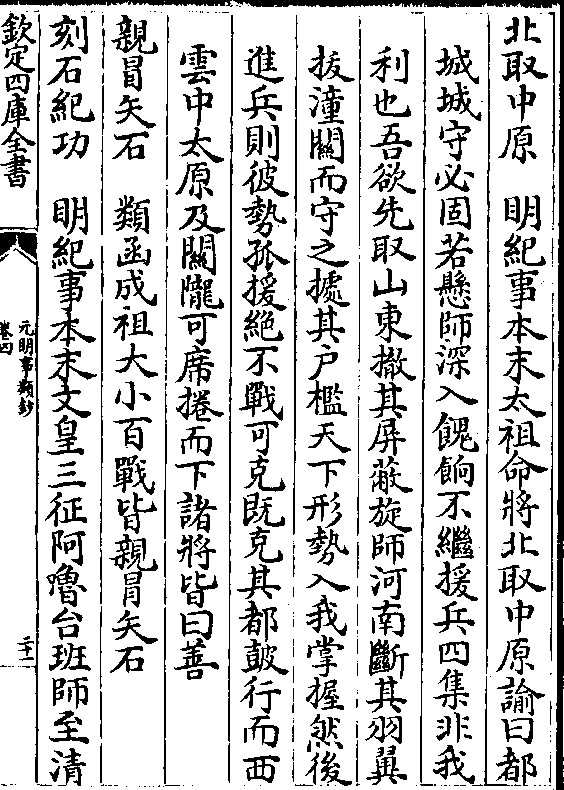 北取中原　明紀事本末太祖命將北取中原諭曰都
城城守必固若懸師深入餽餉不繼援兵四集非我
利也吾欲先取山東撤其屏蔽旋師河南斷其羽翼
拔潼關而守之據其户檻天下形勢入我掌握然後
進兵則彼勢孤援絶不戰可克既克其都鼓行而西
雲中太原及關隴可席捲而下諸將皆曰善
親冒矢石　類函成祖大小百戰皆親冒矢石
刻石紀功　明紀事本末文皇三征阿嚕台班師至清
欽定四庫全書
元明事類鈔
卷四
二十一